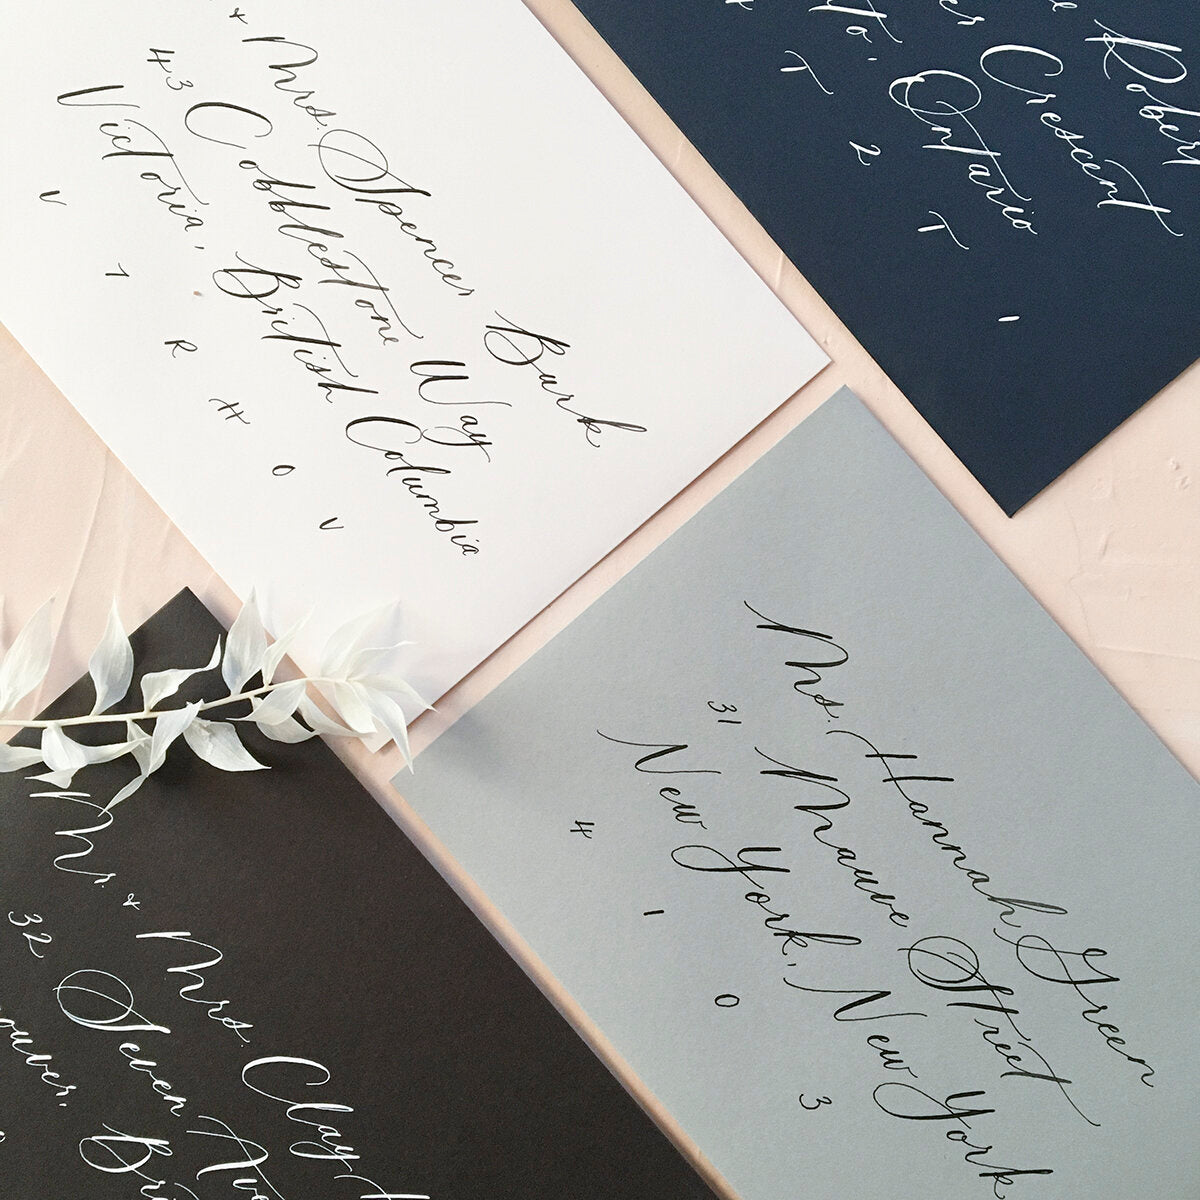 & Mrs. Spencer Burk
43 Cobblestone Way
Victoria, British Columbia
V 7 R H 0 V
Robert
Crescent
Ontario
T 2 T 1
Ms. Hannah Green
31 Mauve Street
New York, New York
4 1 0 3
Mr. & Mrs. Clay
32 Seven